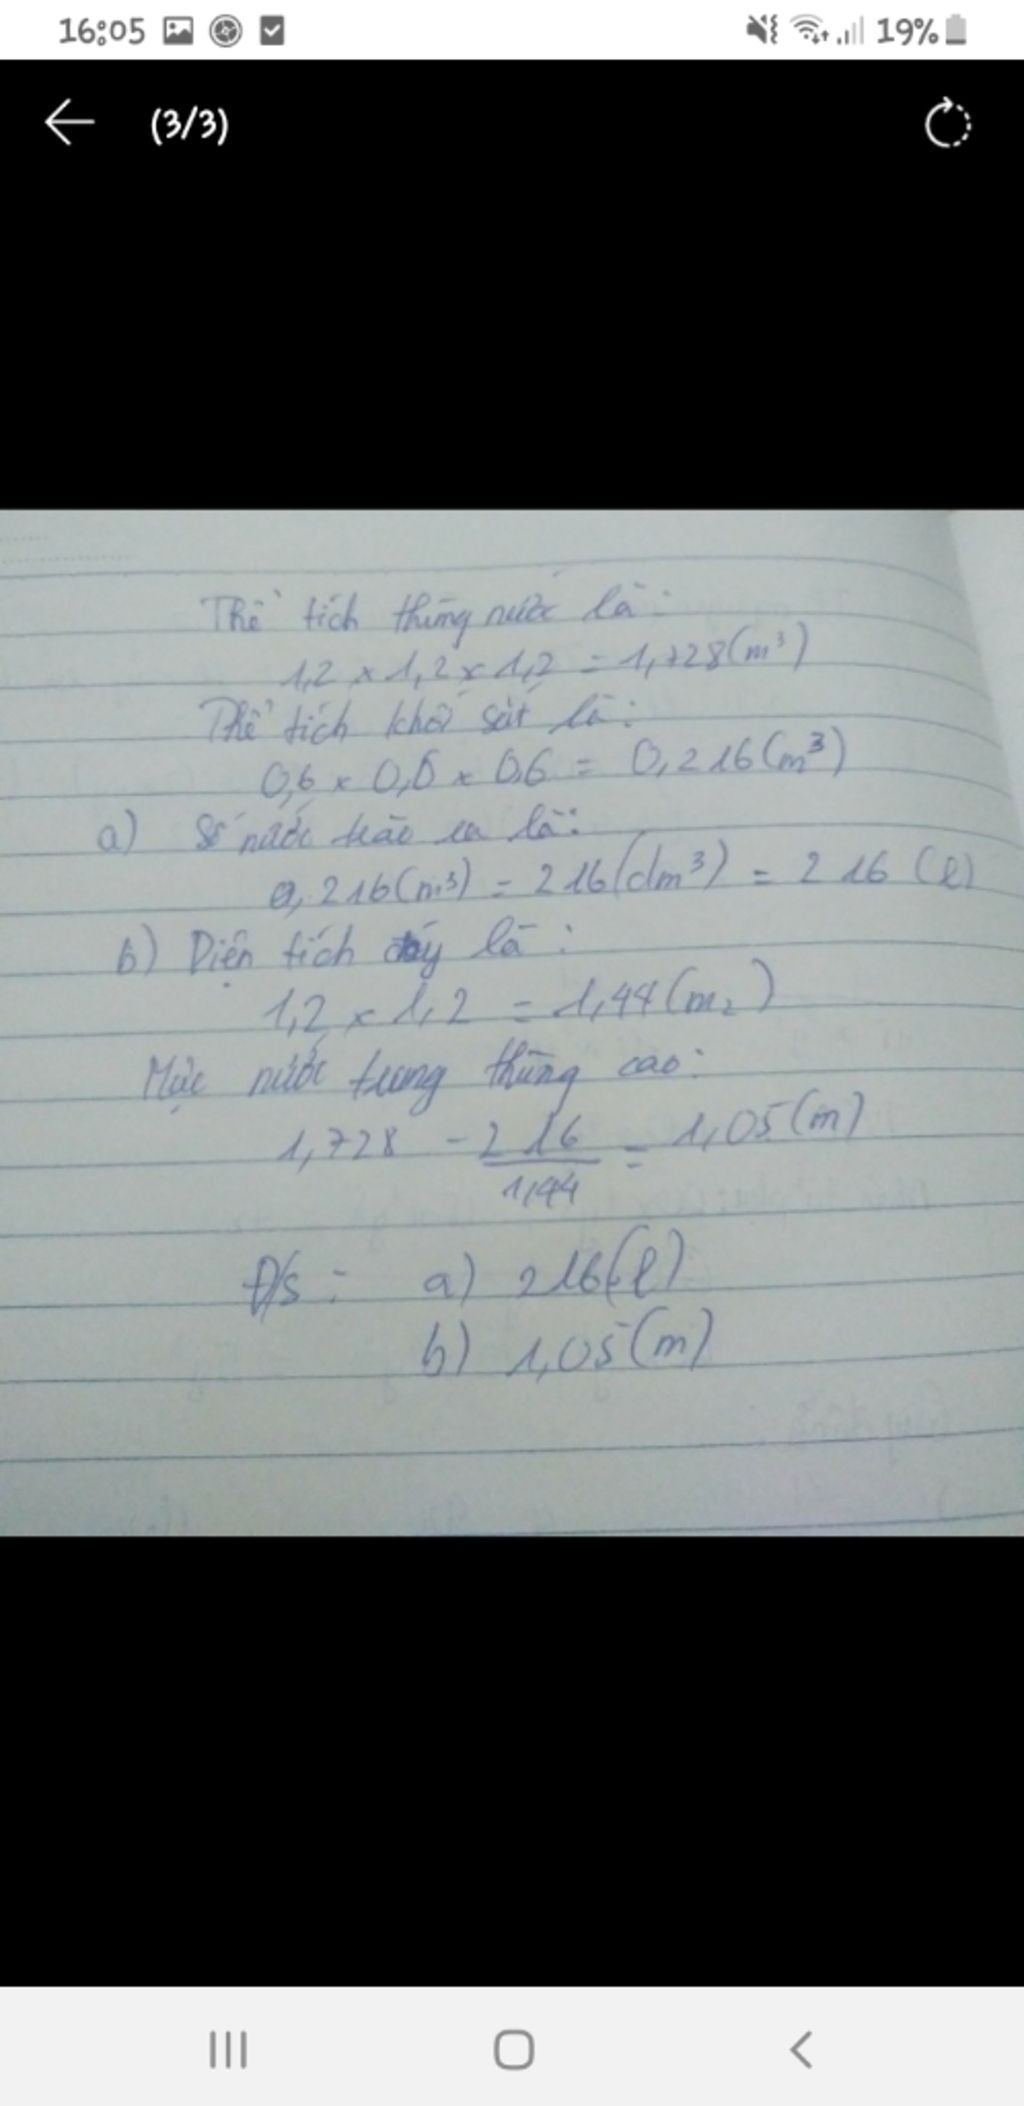 16:05 19%
(3/3)
Thể tích thùng nước là:
1,2 x 1,2 x 1,2 = 1,728(m³)
Thể tích khối sắt là:
0,6 x 0,6 x 0,6 = 0,216(m³)
a) Số nước trào ra là:
0,216(m³) = 216(dm³) = 216 (l)
b) Diện tích đáy là:
1,2 x 1,2 = 1,44(m₂)
Mực nước trong thùng cao:
1,728 - 216 = 1,05(m)
1,44
Đ/s: a) 216(l)
b) 1,05(m)